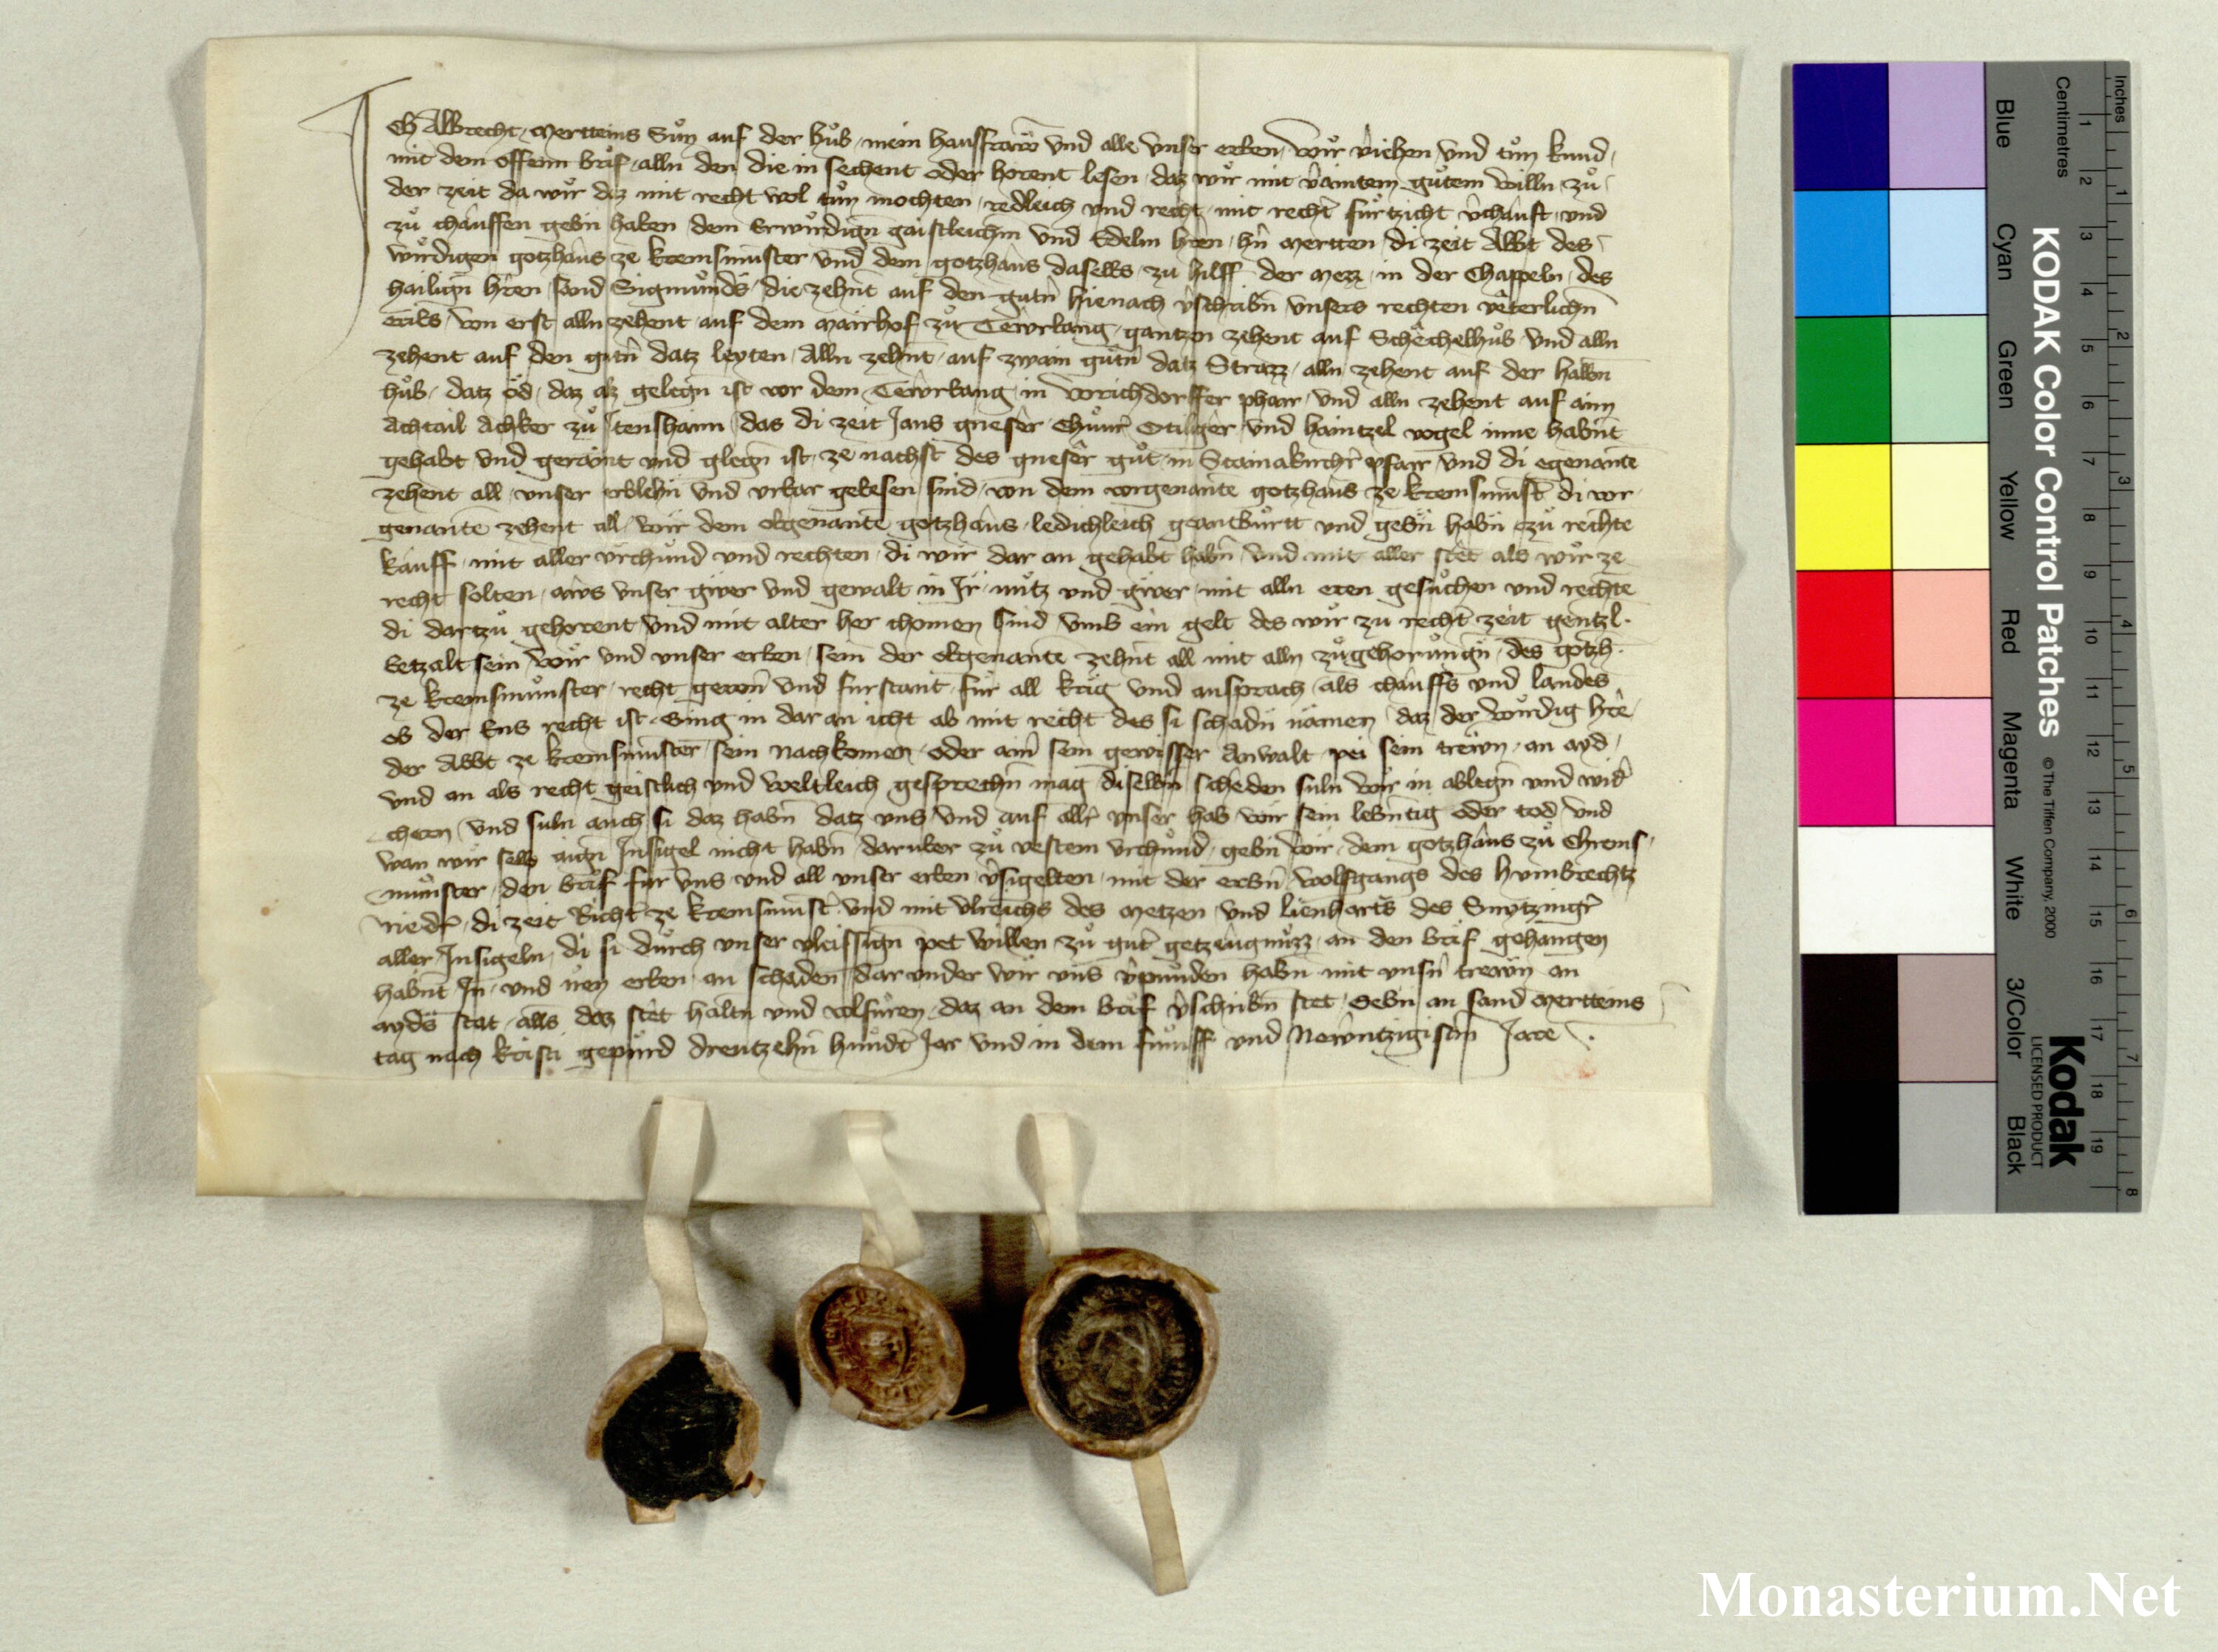 Ich Albrecht Merteins Sůn auf der Hůb mein hausfraw vnd alle vnser erben wir v̂iehen vnd tůn kund
mit dem offenn brif alln den die in sechent oder horent lesen daz wir mit v̂aintem gůtem willn zů
der zeit da wir daz mit recht wol tůn mochten redleich vnd recht mit recht̂ fůrtzicht v̂chauft vnd
zů chauffen gebn̄ haben dem Erwirdign̄ gaistleichm̄ vnd Edeln hr̄en hn̂ Mertten di zeit Abbt des
wirdigen gotzhaus ze kremsmunster vnd dem gotzhaus daselbs zu hilff der mezz in der Chappeln des
hailign̄ hr̄en sand Sigmunds die zehn̄t auf den gutn̂ hienach v̂schribn̄ vnsers rechten vëterlichn̄
erībs von erst alln zehent auf dem mairhof zů Tewrbang gantzen zehent auf Schëchelhůb vnd alln
zehent auf den gutn̂ datz leyten alln zehn̄t auf zwain gůtn̂ datz Strazz alln zehent auf der halbn̄
hůb datz öd daz alz gelegn̄ ist vor dem Tewrbang in vorichdorffer pharr vnd alln zehent auf aim
achtail Acker zů Itenshaim das di zeit Jans gneser vnd haintzel vogel inne habn̄t
gehabt vnd gerawt vnd glegn̄ ist ze nachst des gneser gůt in Stainakirchr̂ pfarr vnd di egenante
zehent all vnser erblehn̄ vnd vrbar gebesen sind von dem vorgenante gotzhaus ze kremsmūst̂ di vor
genante zehent all wir dem obgenante gotzhaus ledichleich geantburtt vnd gebn̄ habn̄ zů rechte
kauff mit aller vrchund vnd rechten di wir dar an gehabt habn̄ vnd mit aller stet als wir ze
recht solten aws vnser giwer vnd gewalt in Ir nutz vnd giwer mit alln eren gesůchen vnd rechte
di dartzů gehorent vnd mit alter her chomen sind vmb ein gelt des wir zu recht̂ zeit gentzl.
betzalt sein wir vnd vnser erben sein der obgenante zehn̄t all mit alln zůgehorungn̄ des gotzh.
ze kremsmunster recht gewern̄ vnd furstant für all krig vnd ansprach als chauffs vnd landes
ob der Ens recht ist Ging in dar an icht ab mit recht des si schadn̄ nämen daz der wirdig hr̄e
der Abbt ze kremsmunster sein nachkomen oder aim̄ sein gewisser Anwalt pei sein trewn an ayd
vnd an als recht geistlich vnd weltleich gesprechn̄ mag diselbn̄ scheden suln wir in ablegn̄ vnd wid̂
chern vnd suln auch si daz habn̄ datz vns vnd auf allr̂ vnser hab wir sein lebn̄tig oder tod vnd
wan wir selb aign̄ Insigel nicht habn̄ daruber zů vestem vrchund gebn̄ wir dem gotzhaus zů Chrems
munster den brif fur vns vnd all vnser erben v̂sigelten mit der erbn̄ Wolfgangs des humbrechtz
rieder di zeit Richt̂ ze kremsmūst̂ vnd mit vlreichs des Metzen vnd lienharts des Smytzingr̂
aller Insigeln di si durch vnser vleissign̄ pet willen zů gut̂ getzeugnuzz an den brif gehangen
habn̄t In vnd irn erben an schaden dar vnder wir vns v̂punden habn̄ mit vnsn̂ trewn an
ayds stat alls daz stet haltn̄ vnd volfuren daz an dem brif v̂schribn̄ stet Gebn̄ an sand Merteins
tag nach kristi gepurd drewtzehn̄ hundt̂ Jar vnd in dem funff vnd Newntzigistm̄ Jare
KODAK Color Control Patches
© The Tiffen Company, 2000
Kodak
LICENSED PRODUCT
Inches
Centimetres
Blue
Cyan
Green
Yellow
Red
Magenta
White
3/Color
Black
1 2 3 4 5 6 7 8 9 10 11 12 13 14 15 16 17 18 19
1 2 3 4 5 6 7 8
Monasterium.Net